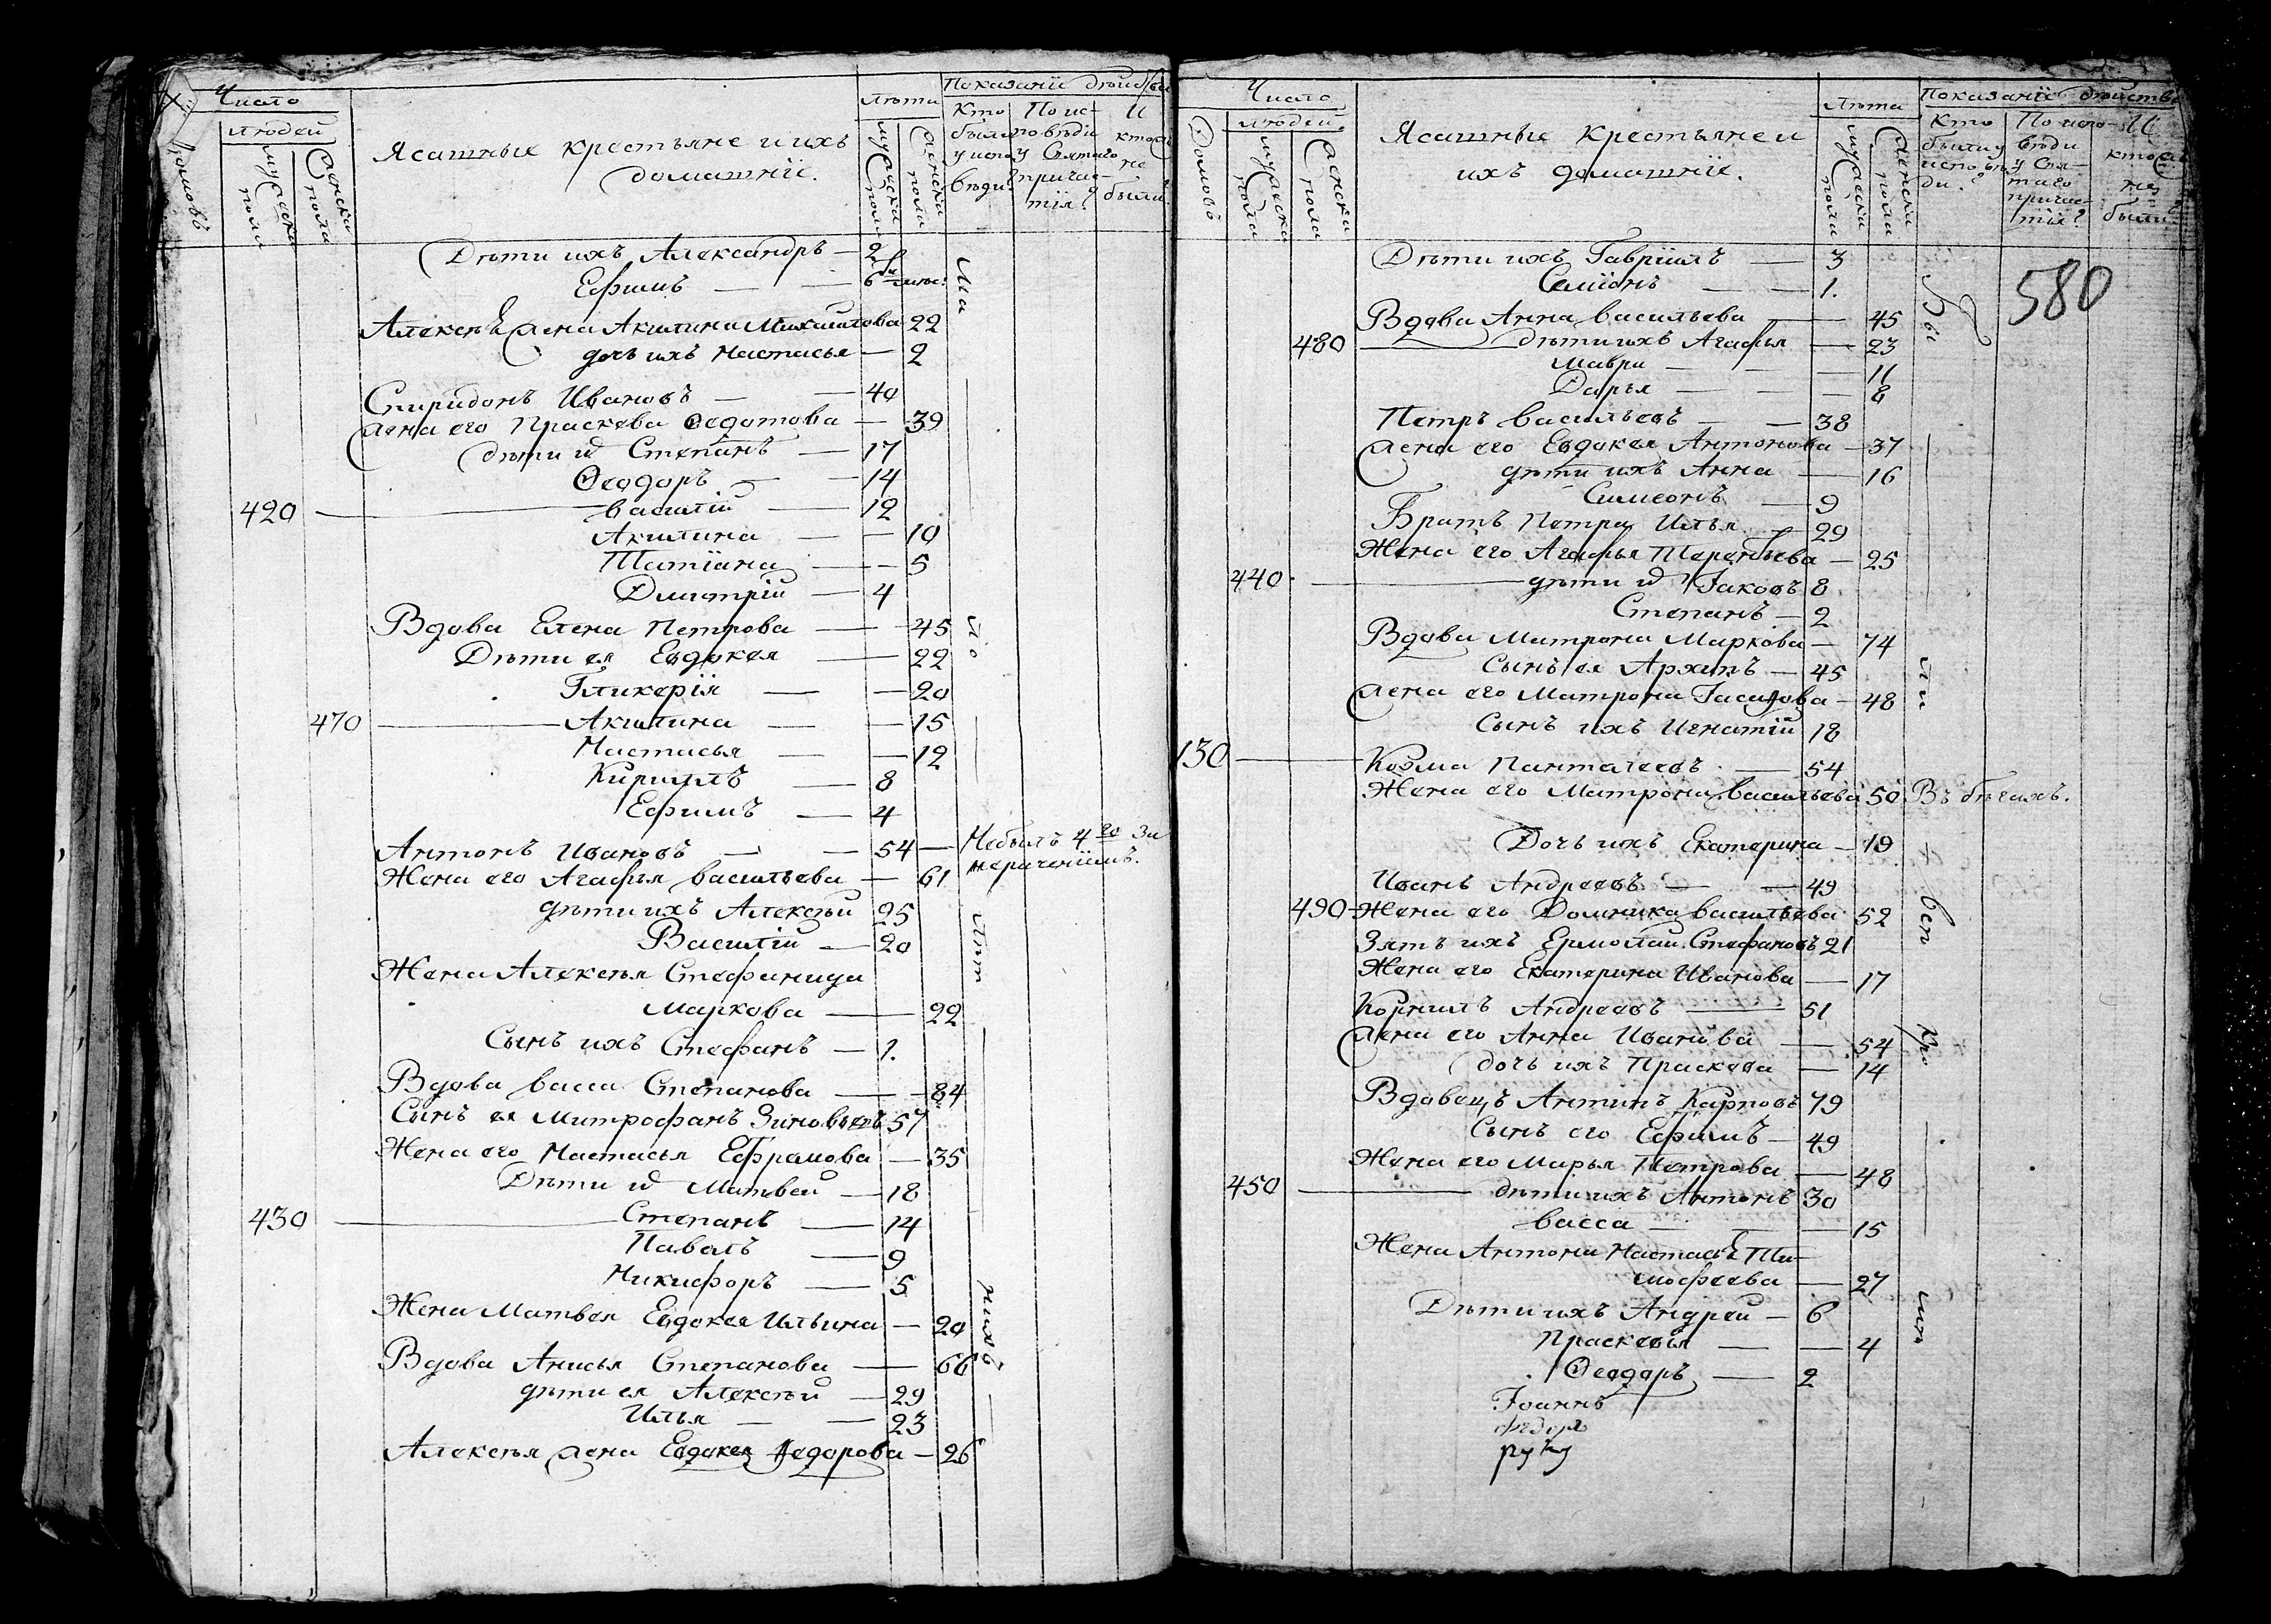 Число
людей
Домовъ
мужеска пола
женска пола
Ясашные крестьяне и ихъ
домашнiи.
лѣта
мужеска пола
женска пола
Показанiе дѣйства
Кто были у исповѣди?
По исповѣди у Святаго причастiя?
И кто не были?
Дѣти ихъ Александръ — 2
Ефимъ — 6
Алексѣ жена Акилина Михаилова 22
дочь ихъ Настасья — 2
Спиридонъ Ивановъ — 40
жена его Праскева Ѳедотова — 39
дѣти их Степанъ — 17
Ѳеодоръ — 14
420 — Василiй — 12
Акилина — 10
Татiана — 5
Дмитрiй — 4
Вдова Елена Петрова — 45
Дѣти ея Евдокея — 22
Гликерiя — 20
470 — Акилина — 15
Настасья — 12
Кирилъ — 8
Ефимъ — 4
Антонъ Ивановъ — 54 — Небылъ 4го за
нераченiимъ.
Жена его Агафья Васильева — 61
дѣти ихъ Алексѣй 25
Василiй — 20
Жена Алексѣя Стефанида
Маркова — 22
Сынъ ихъ Стефанъ — 1.
Вдова Васса Степанова — 84
Сынъ ея Митрофанъ Зиновьевъ 57
Жена его Настасья Ефрамова — 35
Дѣти их Матвей — 18
430 — Степанъ — 14
Павелъ — 9
Никифоръ — 5
Жена Матвея Евдокея Ильина — 20
Вдова Анисья Степанова — 66
дѣти ея Алексѣй — 29
Илья — 23
Алексѣя жена Евдокея Ѳедорова — 26
Число
людей
Домовъ
мужеска пола
женска пола
Ясашные крестьяне и
ихъ домашнiе.
Лѣта
мужеска пола
женска пола
Показанiе дѣйства
Кто были у исповѣди?
По исповѣди у Святаго причастiя?
И кто не были?
580
Дѣти ихъ Гаврiилъ — 3
Семiонъ — 1.
Вдова Анна Васильева — 45
480 — дѣти ихъ Агафья — 23
Мавра — 11
Дарья — 8
Петръ Васильевъ — 38
жена его Евдокея Антонова — 37
дѣти ихъ Анна — 16
Симеонъ — 9
Братъ Петра Илья — 29
Жена его Агафья Терентьева — 25
440 — дѣти их Iаковъ 8
Степанъ — 2
Вдова Матрона Маркова — 74
Сынъ ея Архипъ — 45
жена его Матрона — 48
Сынъ ихъ Игнатiй 18
130 — Козма Панталеевъ — 54
Жена его Матрона Васильева 50 Въ бѣгахъ.
Дочь ихъ Екатерина — 19
Иванъ Андреевъ — 49
490 — Жена его Домника Васильева 52
Зять ихъ Ермолай Стефановъ 21
Жена его Екатерина Иванова — 17
Корнилъ Андреевъ — 51
жена его Анна Иванова — 54
дочь ихъ Праскева — 14
Вдовецъ Антипъ Карповъ 79
Сынъ его Ефимъ — 49
Жена его Марья Петрова — 48
450 — дѣти ихъ Антонъ 30
Васса — 15
Жена Антона Настасья Ти-
мофеева — 27
Дѣти ихъ Андрей — 6
Праскевiя — 4
Ѳеодоръ — 2
Iоаннъ
Федор
руку